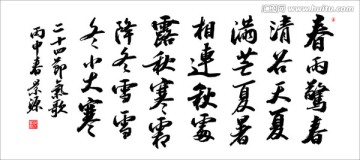 春雨驚春
清谷天夏
满芒夏暑
相連秋處
露秋寒霜
降冬雪雪
冬小大寒
二十四節氣歌
丙申春景源